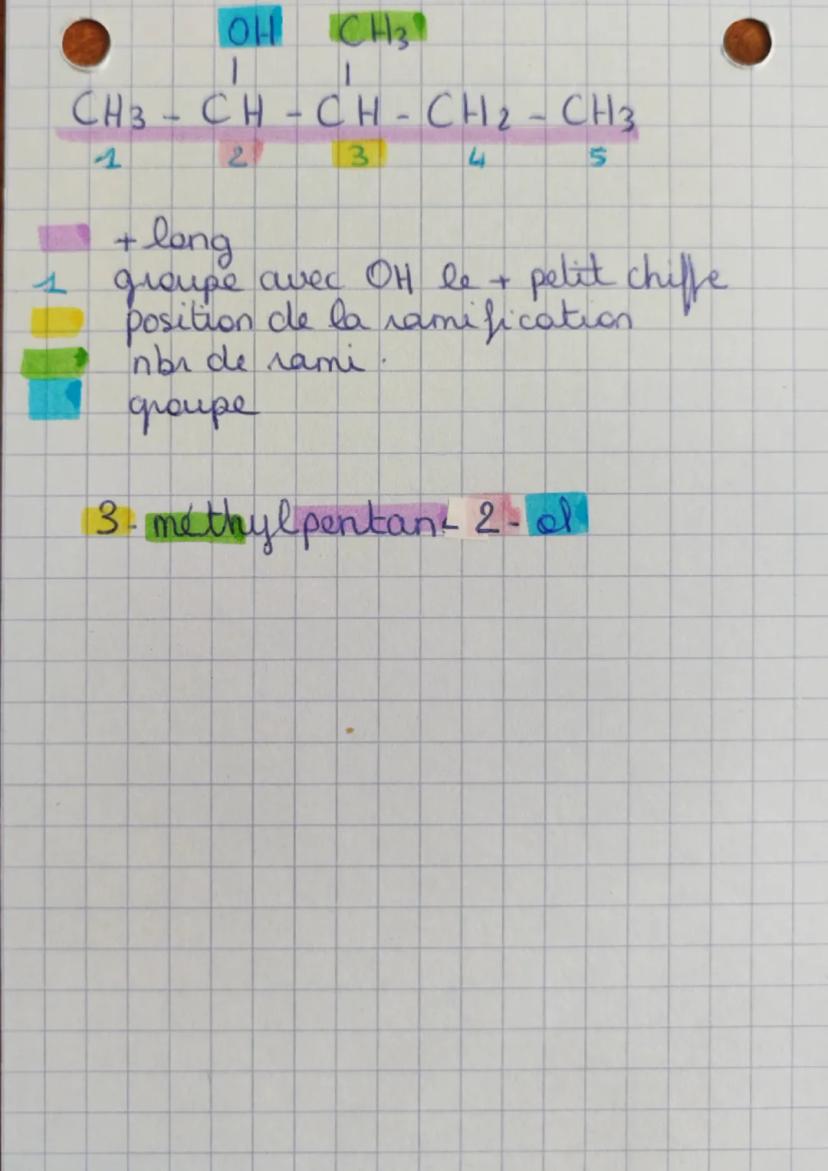 OH CH3
CH3 - CH - CH - CH2 - CH3
1 2 3 4 5
+ long
1 groupe avec OH le + petit chiffe
position de la ramification
nbr de rami.
groupe
3-méthylpentan-2-ol